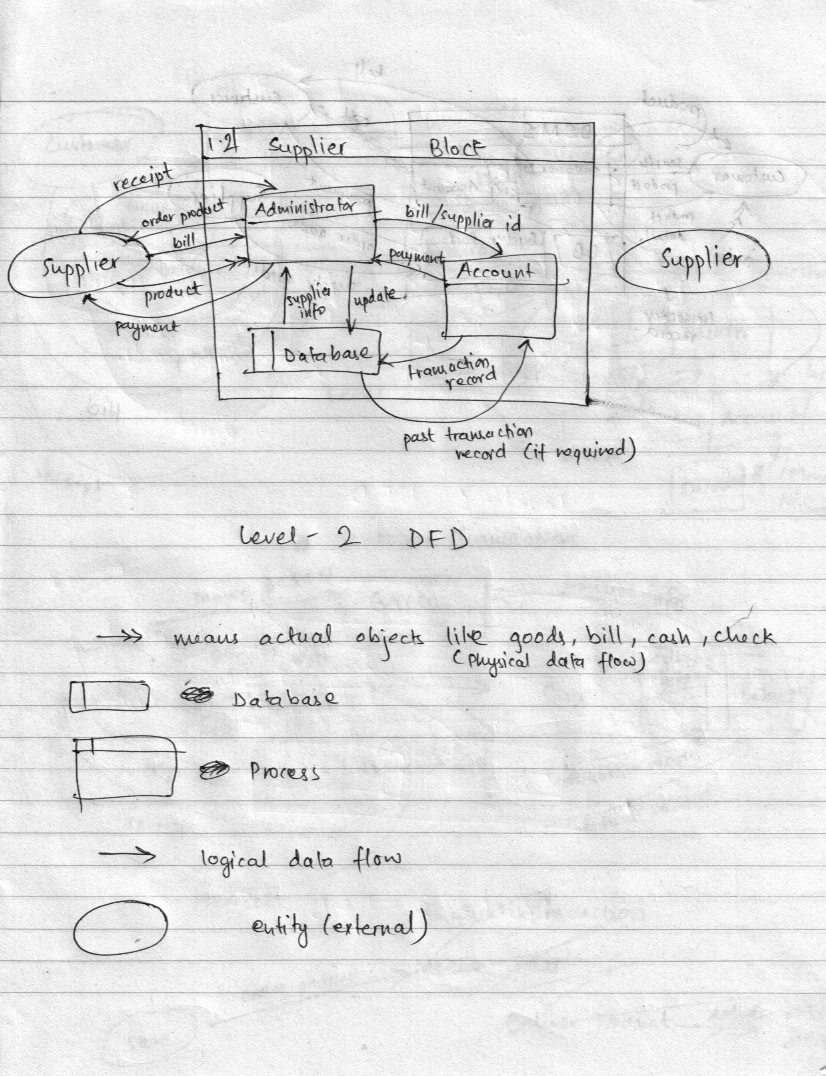 1.2 Supplier Block
receipt
order product
Administrator
bill/supplier id
bill
Supplier
payment
Account
Supplier
product
payment
supplier
info
update.
Database
transaction
record
past transaction
record (if required)
Level - 2 DFD
means actual objects like goods, bill, cash, check
(physical data flow)
Database
Process
logical data flow
entity (external)